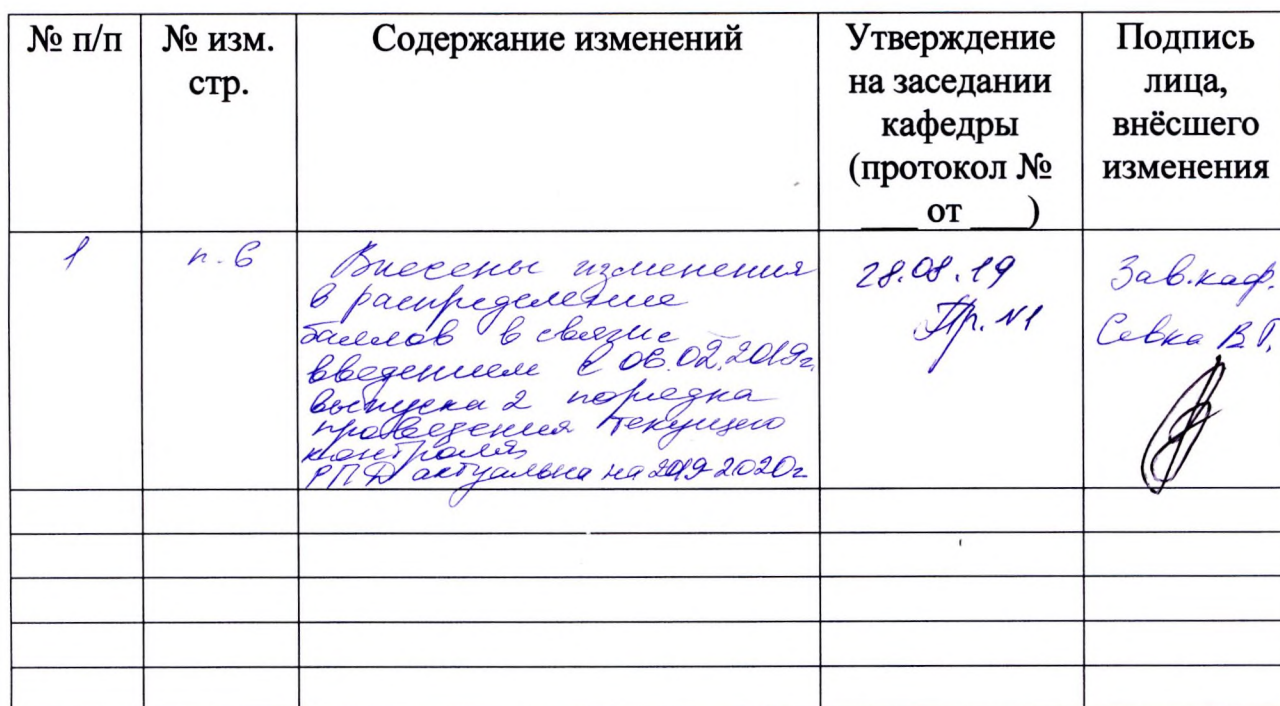 № п/п
№ изм.
стр.
Содержание изменений
Утверждение
на заседании
кафедры
(протокол №
____ от ____)
Подпись
лица,
внёсшего
изменения
1
п. 6
Внесены изменения
в распределение
баллов в связи с
введением с 06.02.2019г.
выпуска 2 порядка
проведения текущего
контроля
РПД актуальна на 2019-2020г
28.08.19
Пр. №1
Зав.каф.
Севка В.Г.